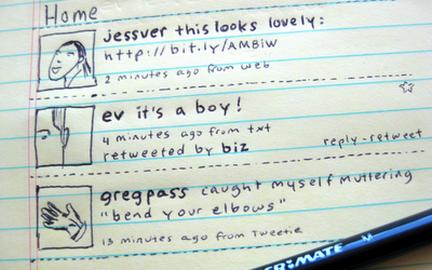 Home
jessver this looks lovely:
http://bit.ly/AM8iW
2 minutes ago from web
ev it's a boy!
4 minutes ago from txt
retweeted by biz
reply-retweet
gregpass caught myself muttering
"bend your elbows"
13 minutes ago from Tweetie